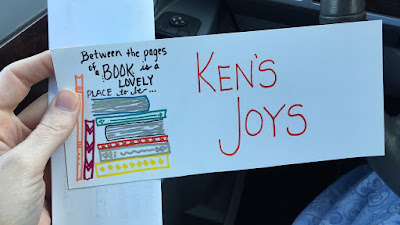 Between the pages
of a BOOK is a
LOVELY
PLACE to be...
KEN'S
JOYS